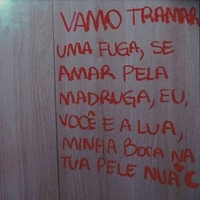 VAMO TRAMAR
UMA FUGA, SE
AMAR PELA
MADRUGA, EU,
VOCÊ E A LUA,
MINHA BOCA NA
TUA PELE NUA